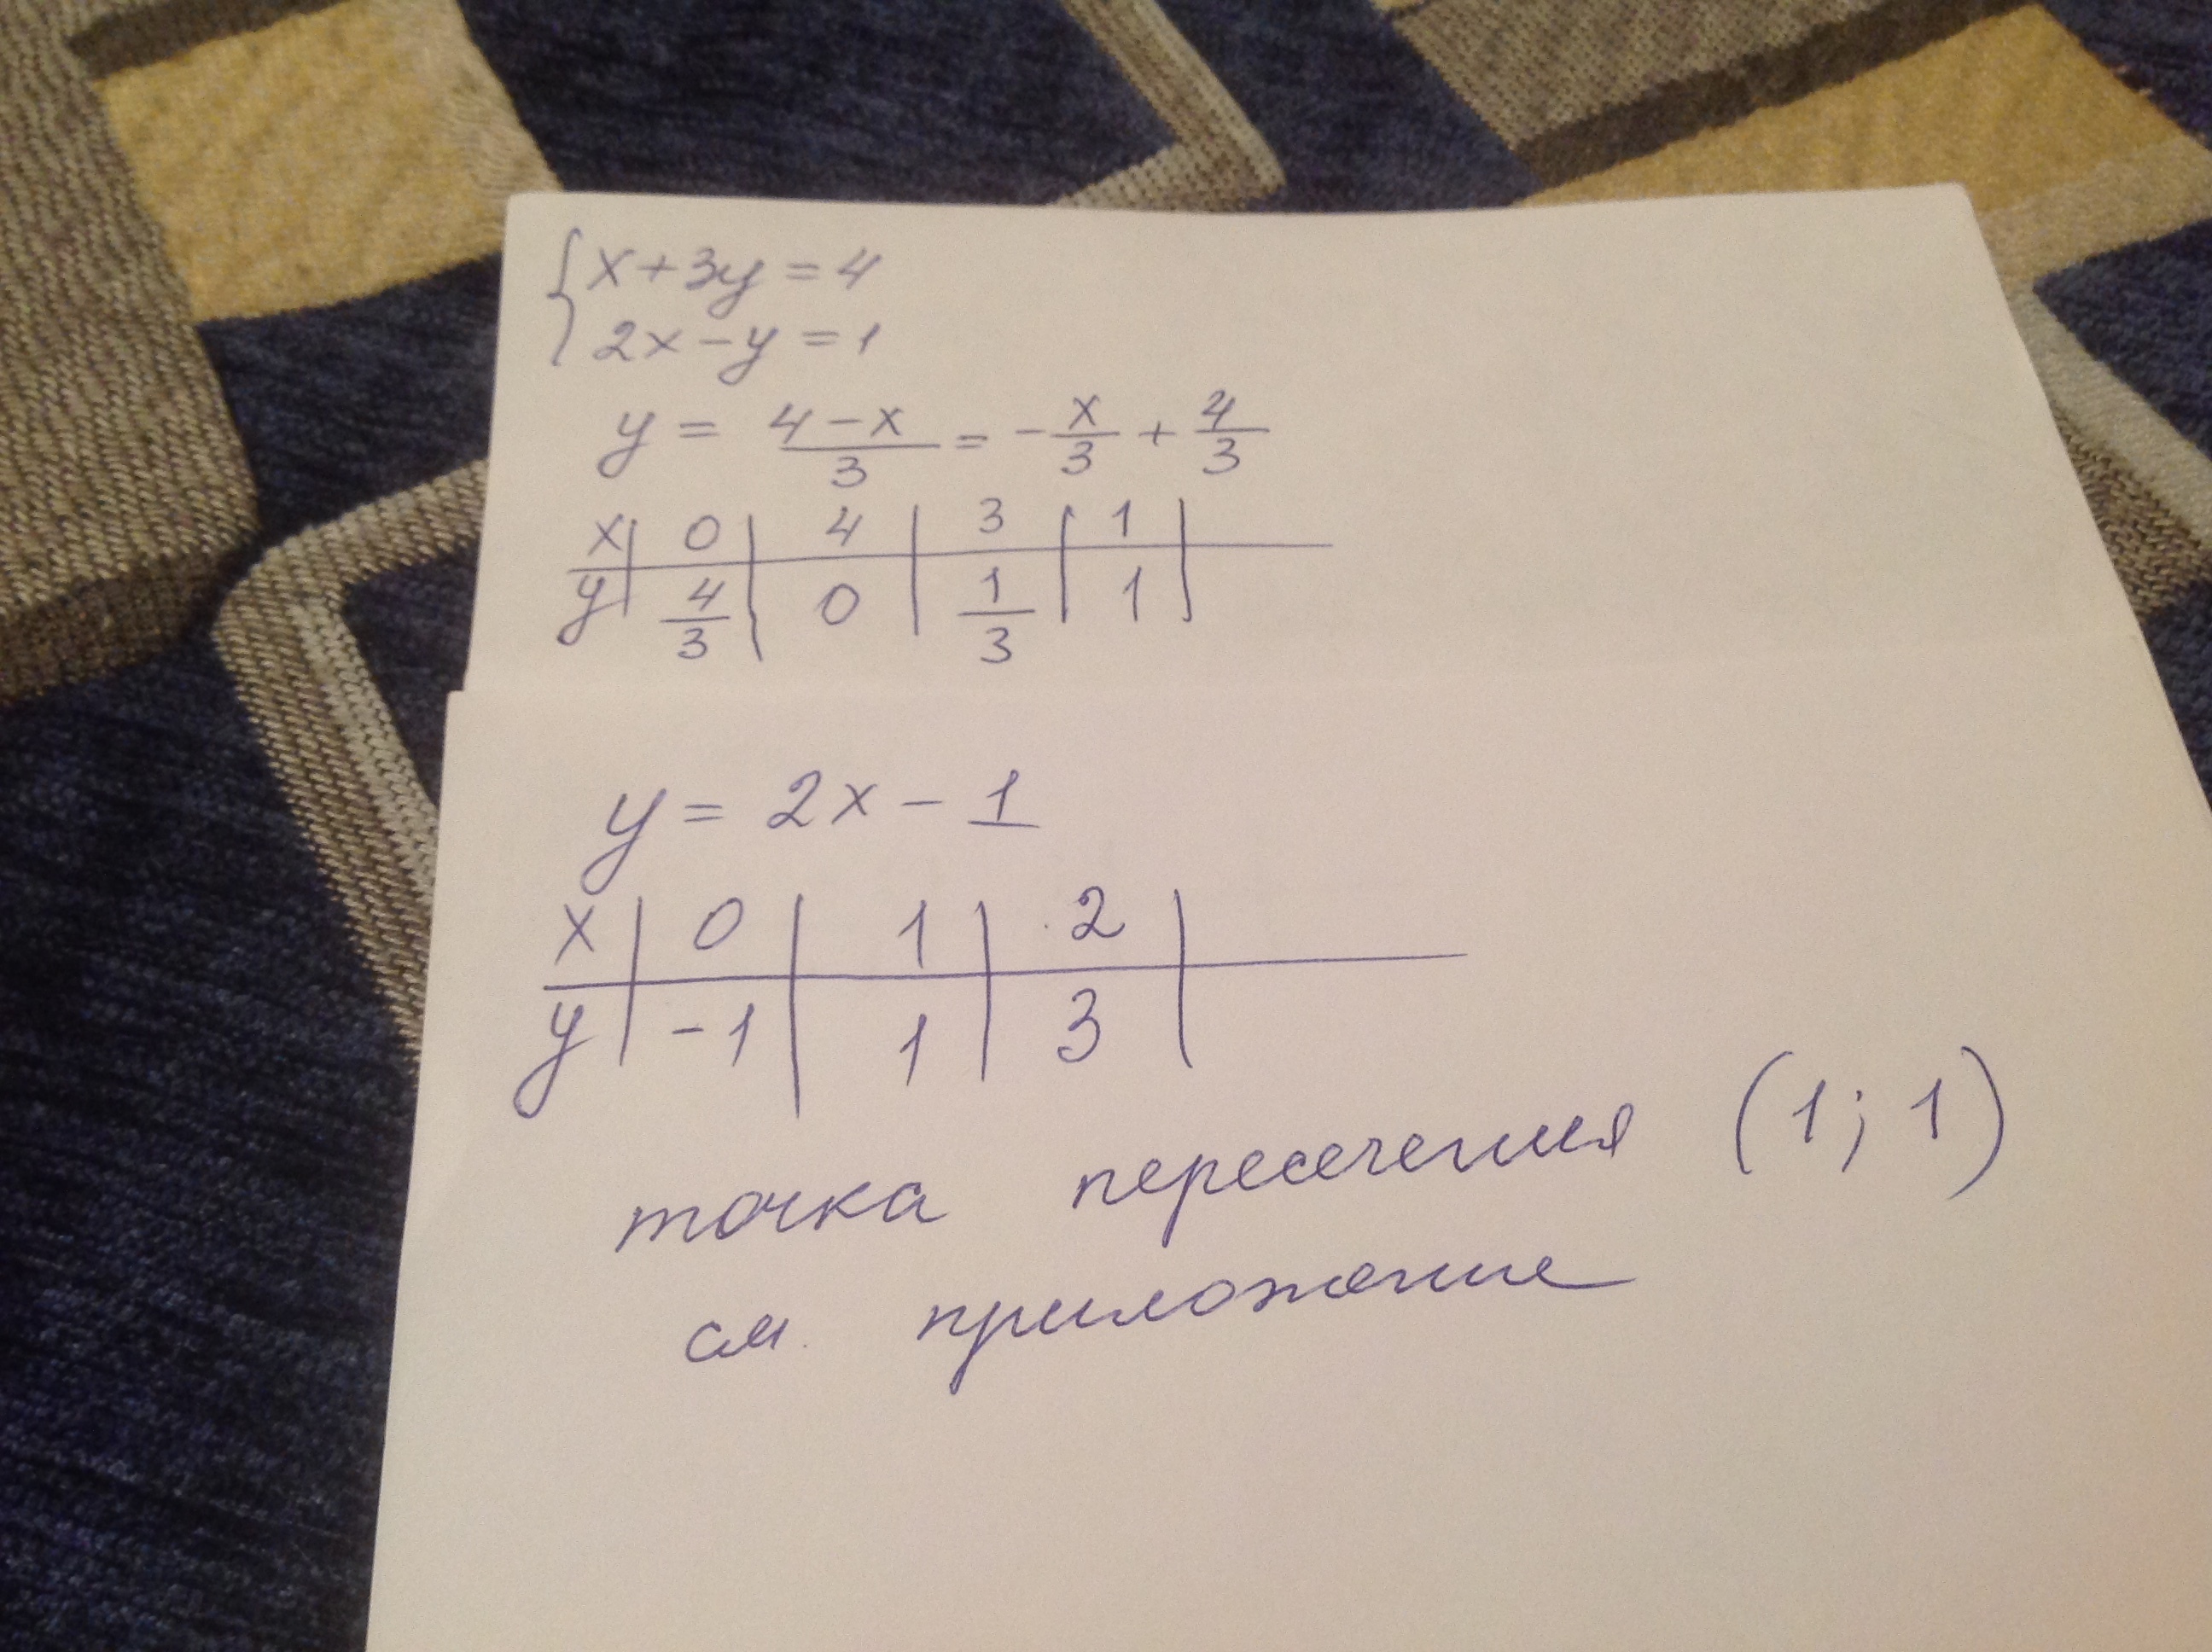 {x+3y=4
2x-y=1
y = 4-x/3 = -x/3 + 4/3
x | 0 | 4 | 3 | 1 |
y | 4/3 | 0 | 1/3 | 1 |
y = 2x - 1
x | 0 | 1 | 2 |
y | -1 | 1 | 3 |
точка пересечения (1; 1)
см. приложение